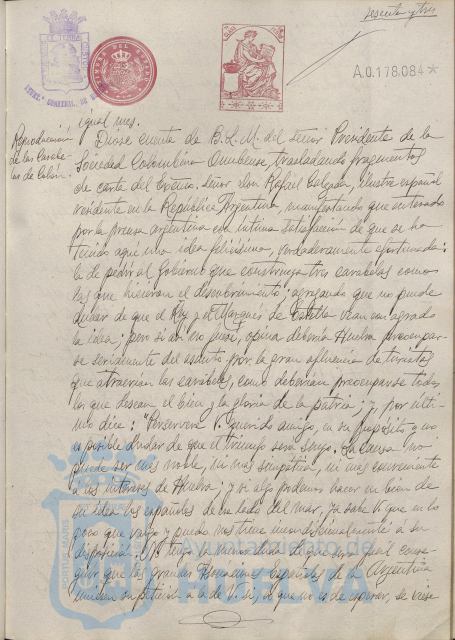 sesenta y tres
A.0.178.084*
TIMBRE DEL ESTADO
igual mes.
Reproducción
de las Carabe-
las de Colón.
Diose cuenta de B. L. M. del señor Presidente de la
Sociedad Colombina Onubense, trasladando fragmentos
de carta del Excmo. señor don Rafael Calzada, ilustre español
residente en la República Argentina, manifestando que enterado
por la prensa argentina con íntima satisfacción de que se ha
tenido aquí una idea felicísima, verdaderamente afortunada:
la de pedir al Gobierno que construya tres carabelas como
las que hicieron el descubrimiento; agregando que no puede
dudar de que el Rey y el Marqués de Estella vean con agrado
la idea; pero si así no fuese, opina debería Huelva preocupar-
se seriamente del asunto por la gran afluencia de turistas
que atraerían las carabelas, como deberían preocuparse todos
los que desean el bien y la gloria de la patria; y, por últi-
mo dice: "Persevere V. querido amigo, en su propósito y no
es posible dudar de que el triunfo será suyo. La causa no
puede ser más noble, ni más simpática, ni más conveniente
a los intereses de Huelva; y si algo podemos hacer en bien de
su idea los españoles de este lado del mar, ya sabe V. que en lo
poco que valgo y puedo nos tiene incondicionalmente a su
disposición. No tengo la menor duda de que sería fácil conse-
guir que las grandes Asociaciones Españolas de la Argentina
unieran su petición a la de V. si, lo que no es de esperar, se viese
Ayuntamiento de
HUELVA